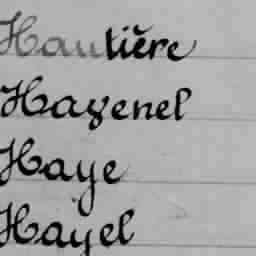 Hautière
Hayenel
Haye
Hayel